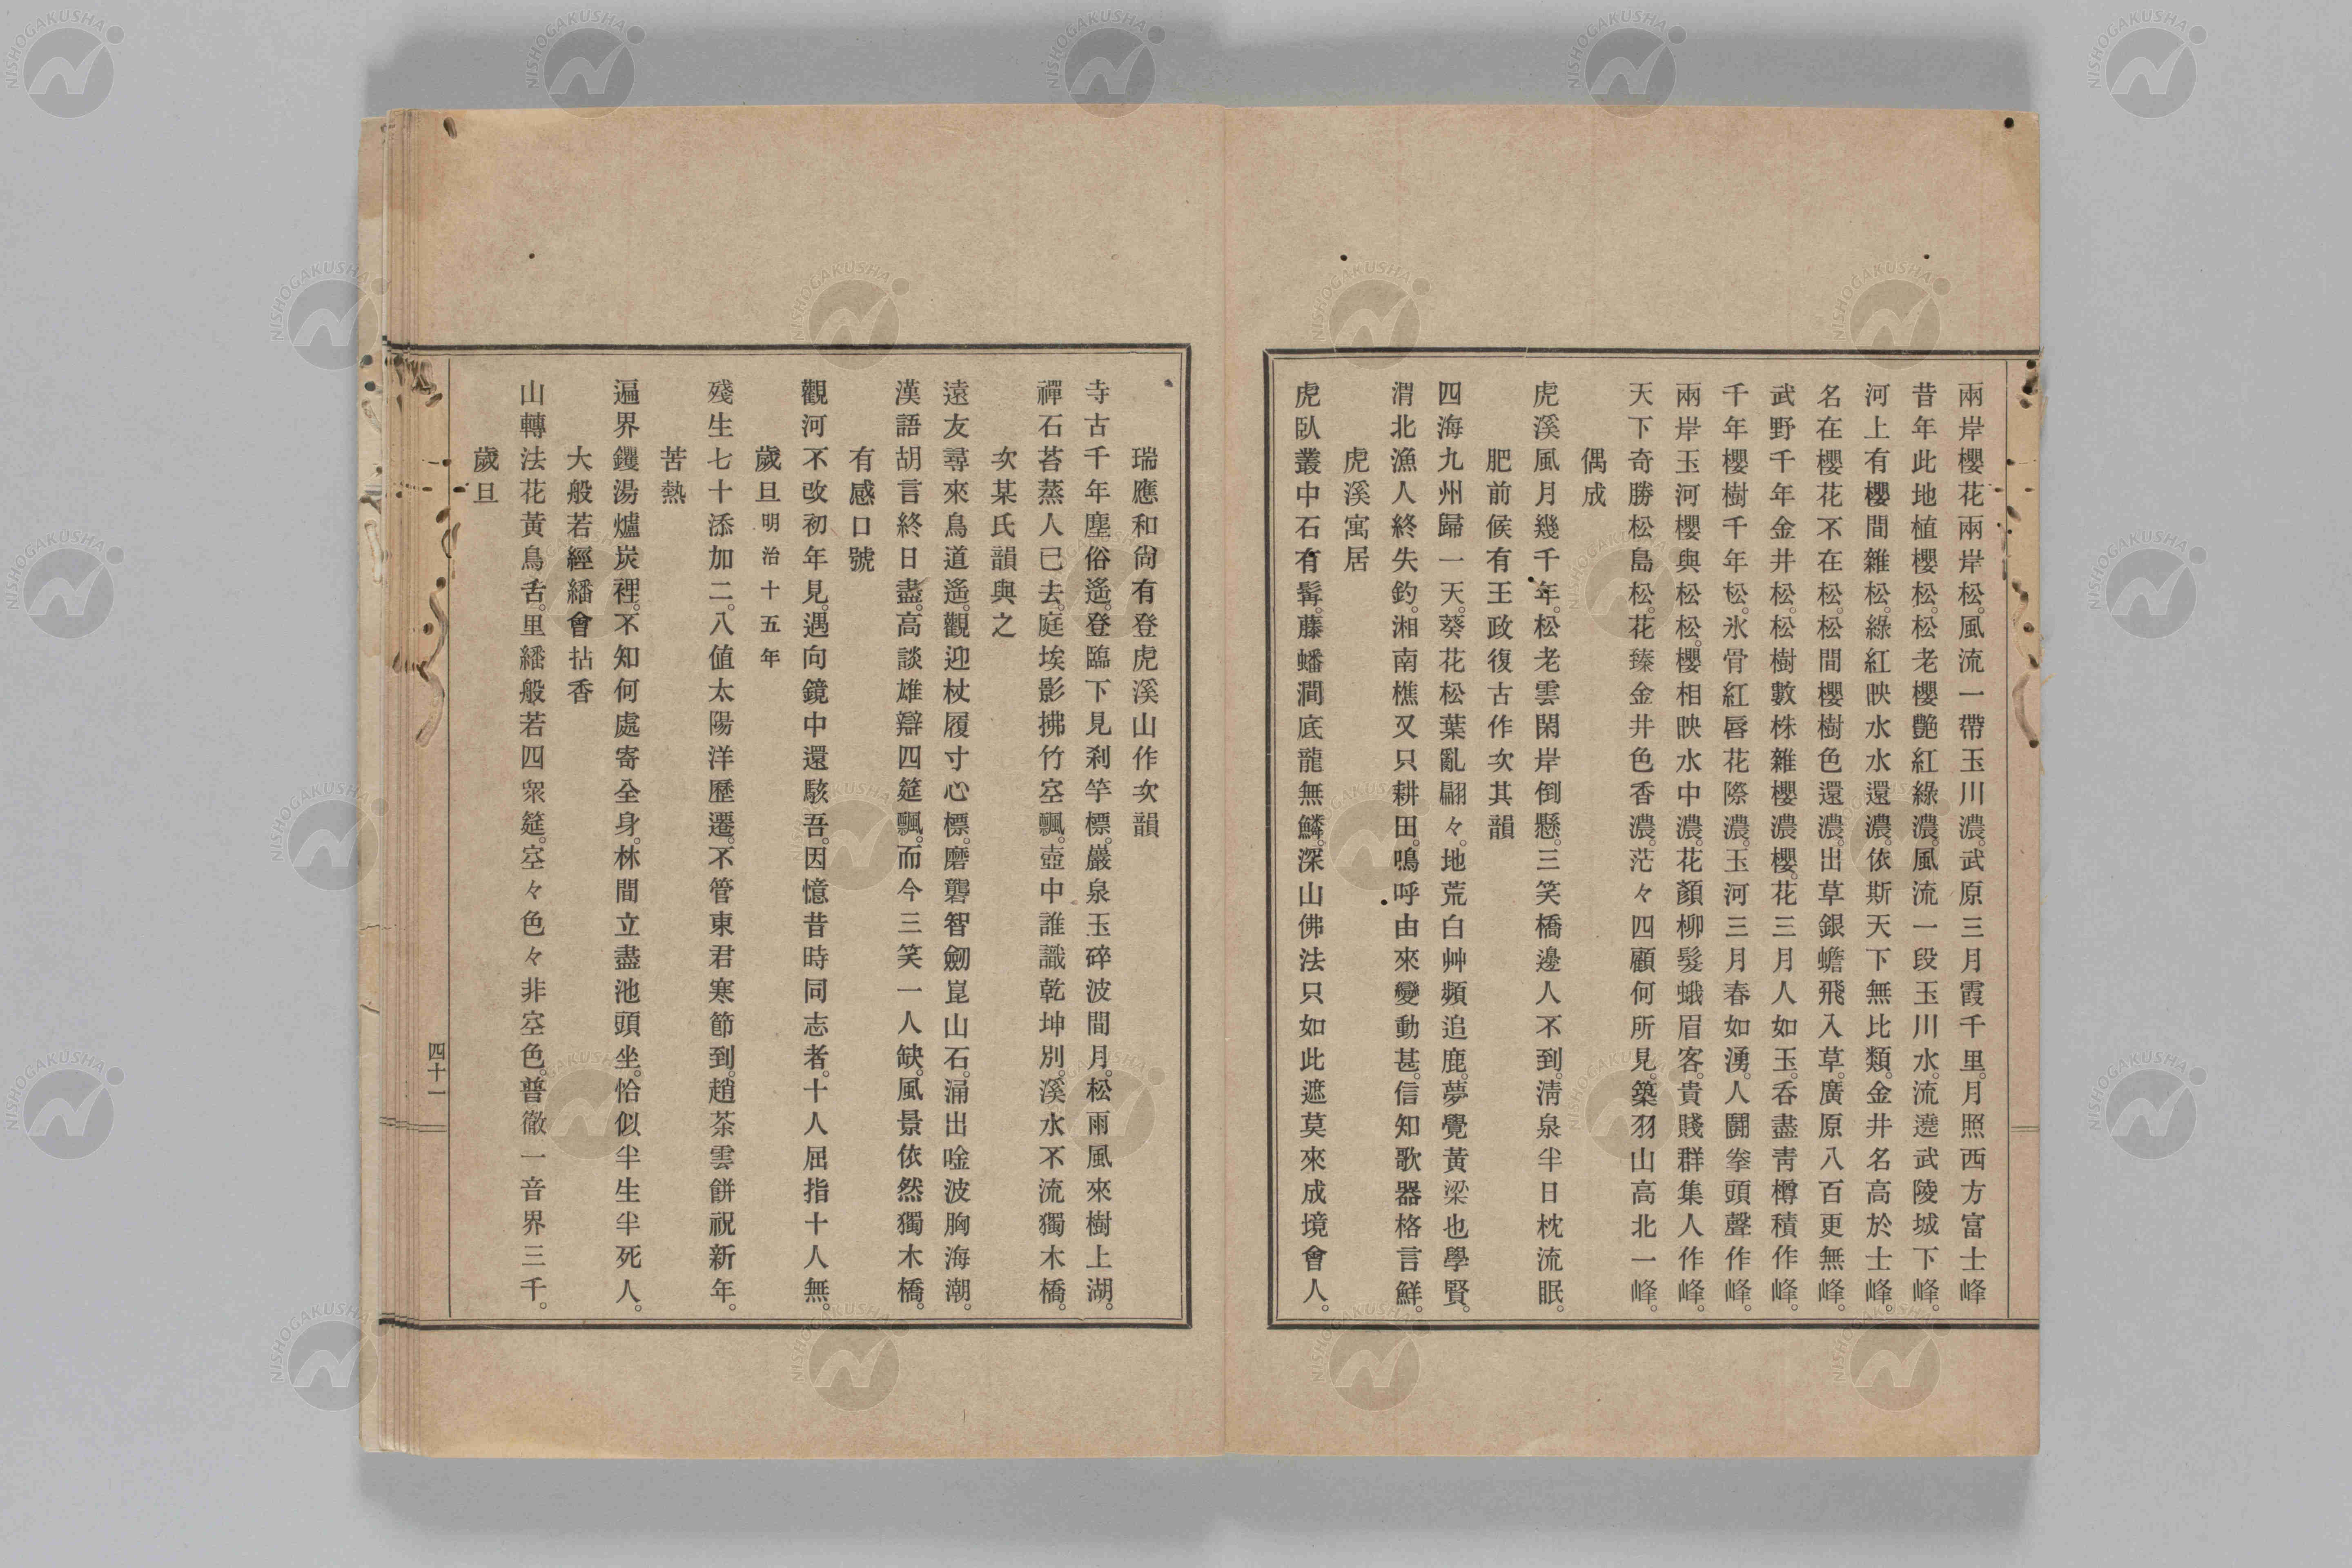 兩岸櫻花兩岸松。風流一帶玉川濃。武原三月霞千里。月照西方富士峰
昔年此地植櫻松。松老櫻艶紅綠濃。風流一段玉川水。流遶武陵城下峰。
河上有櫻間雜松。綠紅映水水還濃。依斯天下無比類。金井名高於士峰。
名在櫻花不在松。松間櫻樹色還濃。出草銀蟾飛入草。廣原八百更無峰。
武野千年金井松。松樹數株雜櫻濃。櫻花三月人如玉。呑盡靑樽積作峰。
千年櫻樹千年松。氷骨紅唇花際濃。玉河三月春如湧。人鬪拳頭聲作峰。
兩岸玉河櫻與松。松櫻相映水中濃。花顏柳髮蛾眉客。貴賤群集人作峰。
天下奇勝松島松。花臻金井色香濃。茫々四顧何所見。築羽山高北一峰。
偶成
虎溪風月幾千年。松老雲閑岸倒懸。三笑橋邊人不到。淸泉半日枕流眠。
肥前候有王政復古作次其韻
四海九州歸一天。葵花松葉亂翩々。地荒白艸頻追鹿。夢覺黃梁也學賢。
渭北漁人終失釣。湘南樵又只耕田。嗚呼由來變動甚。信知歌器格言鮮。
虎溪寓居
虎臥叢中石有髯。藤蟠澗底龍無鱗。深山佛法只如此遮莫來成境會人。
瑞應和尙有登虎溪山作次韻
寺古千年塵俗遙。登臨下見刹竿標。巖泉玉碎波間月。松雨風來樹上湖。
禪石苔蒸人已去。庭埃影拂竹空飄。壺中誰識乾坤別。溪水不流獨木橋。
次某氏韻與之
遠友尋來鳥道遙。觀迎杖履寸心標。磨礱智劒崑山石。涌出唫波胸海潮。
漢語胡言終日盡。高談雄辯四筵飄。而今三笑一人缺。風景依然獨木橋。
有感口號
觀河不改初年見。遇向鏡中還駭吾。因憶昔時同志者。十人屈指十人無。
歲旦明治十五年
殘生七十添加二。八値太陽洋曆遷。不管東君寒節到。趙茶雲餅祝新年。
苦熱
遍界鑊湯爐炭裡。不知何處寄全身。林間立盡池頭坐。恰似半生半死人。
大般若經繙會拈香
山轉法花黃鳥舌。里繙般若四衆筵。空々色々非空色。普徹一音界三千。
歲旦
四十一